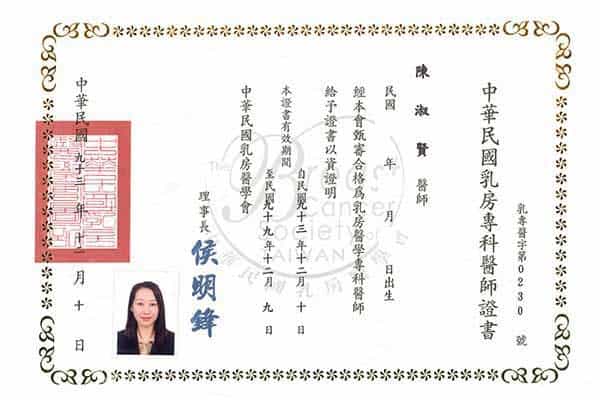 乳專醫字第0230號
中華民國乳房專科醫師證書
陳淑賢 醫師
民國 年 月 日出生
經本會甄審合格爲乳房醫學專科醫師
給予證書以資證明
本證書有效期間
自民國九十三年十二月十日
至民國九十九年十二月九日
中華民國乳房醫學會
理事長 侯明鋒
中華民國九十三年十二月十日
The Breast Cancer Society of TAIWAN